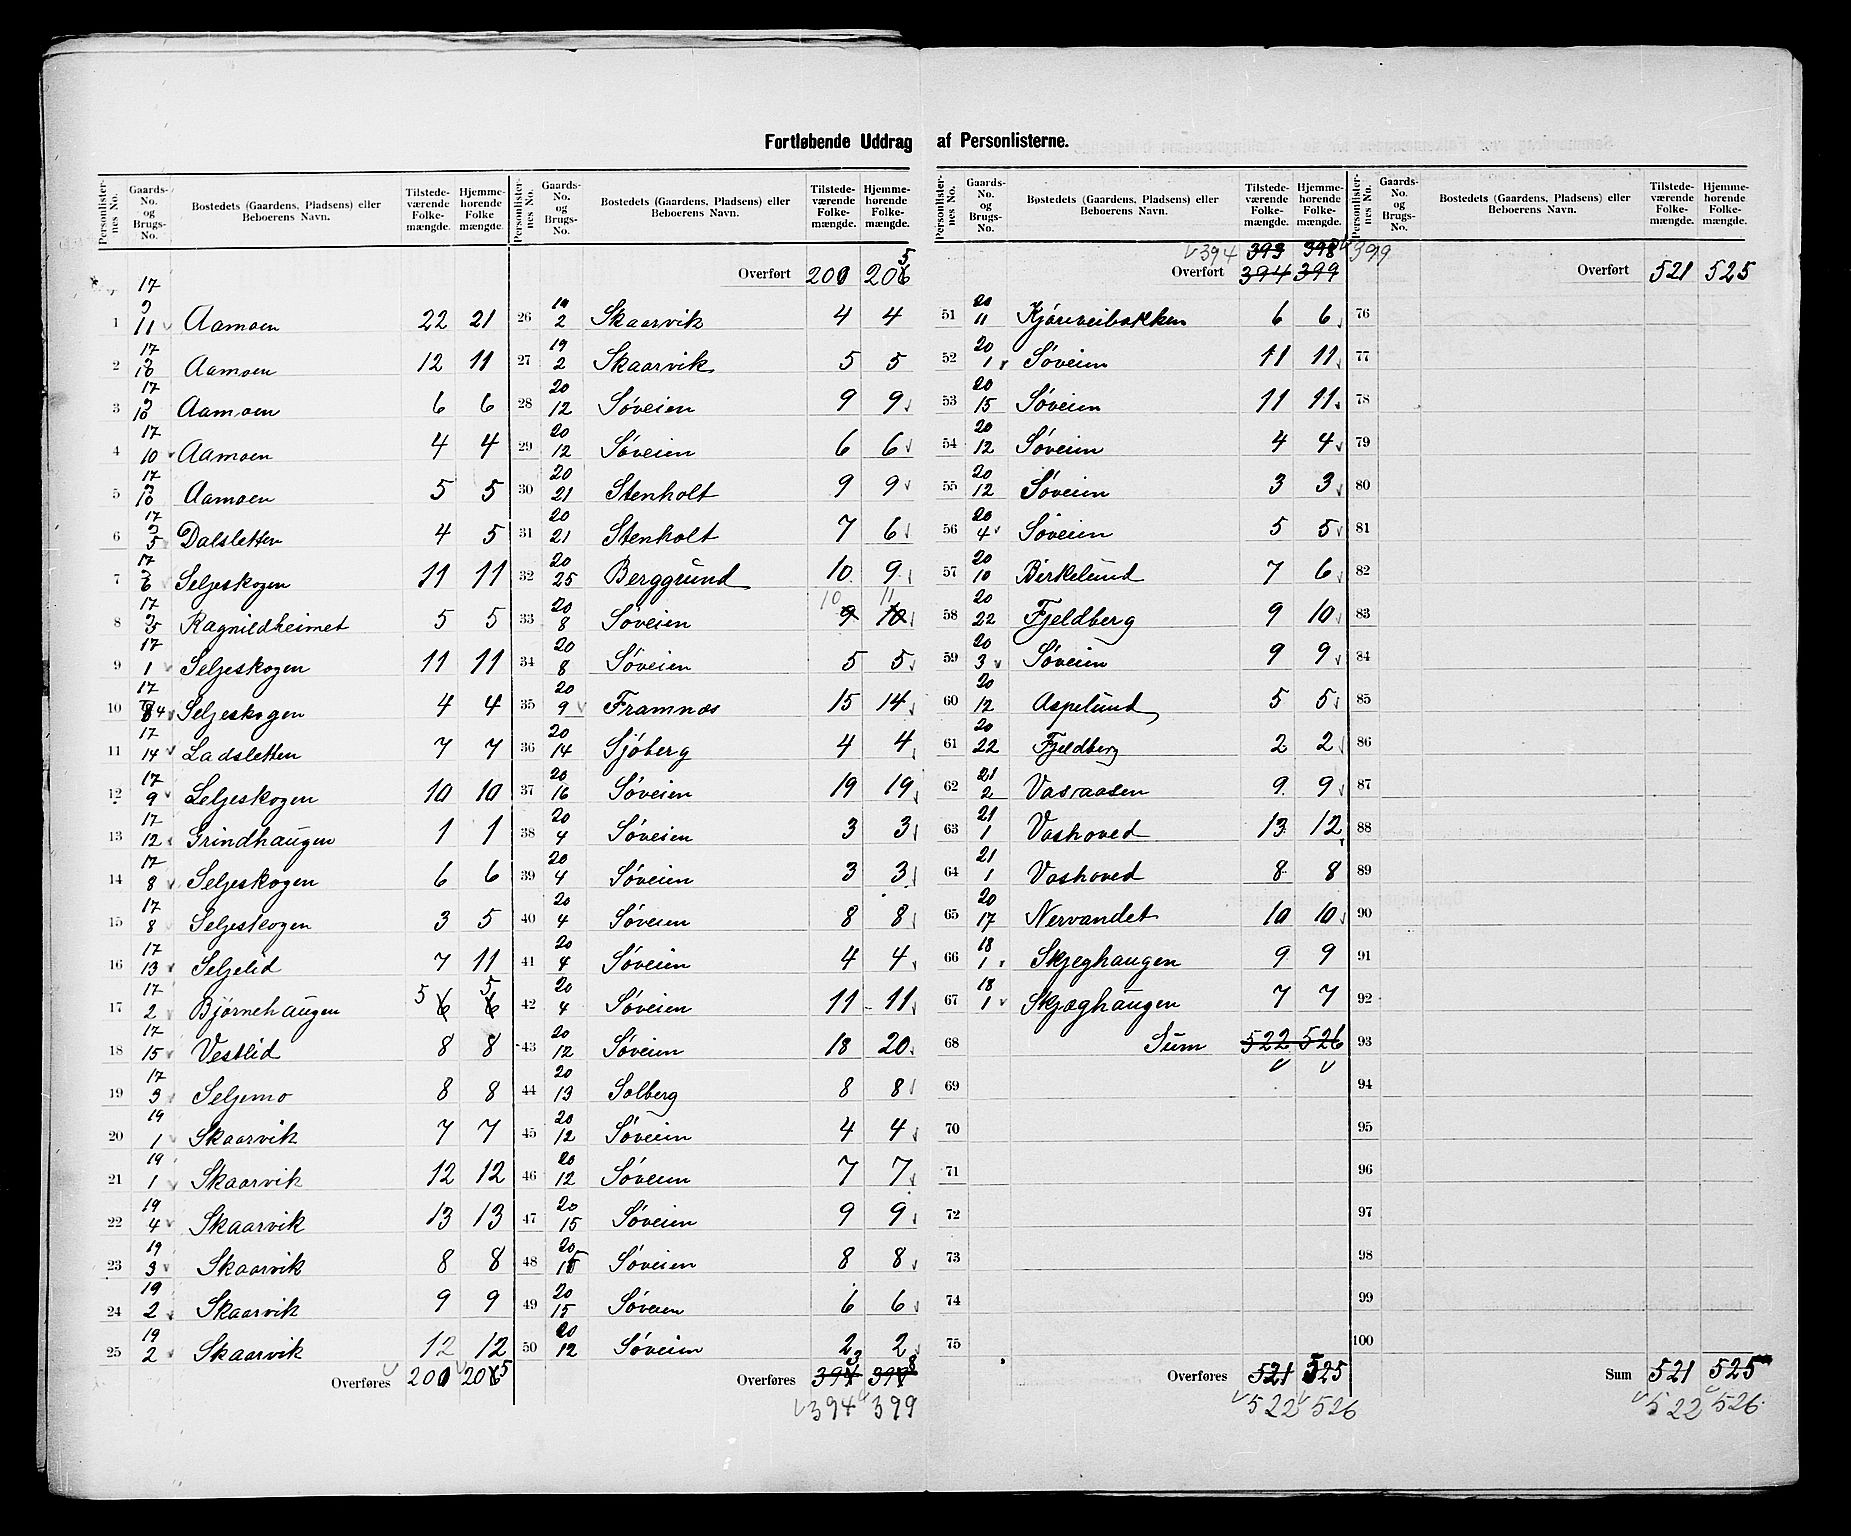 Fortløbende Uddrag af Personlisterne.
Personlister- nes No. | Gaards- No. og Brugs- No. | Bostedets (Gaardens, Pladsens) eller Beboerens Navn. | Tilstede- værende Folke- mængde. | Hjemme- hørende Folke mængde.
1 17 11 Aamoen 22 21
2 17 10 Aamoen 12 11
3 17 10 Aamoen 6 6
4 17 10 Aamoen 4 4
5 17 10 Aamoen 5 5
6 17 5 Dalsletten 4 5
7 17 6 Seljeskogen 11 11
8 17 5 Ragnildheimet 5 5
9 17 1 Seljeskogen 11 11
10 17 4 Seljeskogen 4 4
11 17 14 Ladsletten 7 7
12 17 9 Seljeskogen 10 10
13 17 12 Grindhaugen 1 1
14 17 8 Seljeskogen 6 6
15 17 8 Seljeskogen 3 5
16 17 13 Seljelid 7 11
17 17 2 Bjørnehaugen 5 6 5 6
18 17 15 Vestlid 8 8
19 17 3 Seljemo 8 8
20 19 1 Skaarvik 7 7
21 19 1 Skaarvik 12 12
22 19 4 Skaarvik 13 13
23 19 3 Skaarvik 8 8
24 19 2 Skaarvik 9 9
25 19 2 Skaarvik 12 12
Overføres 200 2065
Personlister- nes No. | Gaards- No. og Brugs- No. | Bostedets (Gaardens, Pladsens) eller Beboerens Navn. | Tilstede- værende Folke- mængde. | Hjemme- hørende Folke- mængde.
Overført 200 206 5
26 19 2 Skaarvik 4 4
27 19 2 Skaarvik 5 5
28 20 12 Søveien 9 9
29 20 12 Søveien 6 6
30 20 21 Stenholt 9 9
31 20 21 Stenholt 7 6
32 20 25 Berggrund 10 9
33 20 8 Søveien 10 9 11 10
34 20 8 Søveien 5 5
35 20 9 Framnæs 15 14
36 20 14 Sjøberg 4 4
37 20 16 Søveien 19 19
38 20 4 Søveien 3 3
39 20 4 Søveien 3 3
40 20 4 Søveien 8 8
41 20 4 Søveien 4 4
42 20 4 Søveien 11 11
43 20 12 Søveien 18 20
44 20 13 Solberg 8 8
45 20 12 Søveien 4 4
46 20 12 Søveien 7 7
47 20 15 Søveien 9 9
48 20 15 Søveien 8 8
49 20 15 Søveien 6 6
50 20 12 Søveien 2 2
Overføres 394 3 399 8
394 399
Personlister- nes No. | Gaards- No. og Brugs- No. | Bostedets (Gaardens, Pladsens) eller Beboerens Navn. | Tilstede- værende Folke- mængde. | Hjemme- hørende Folke- mængde.
394 393 398 399
Overført 394 399
51 20 11 Kjøreveibakken 6 6
52 20 1 Søveien 11 11
53 20 15 Søveien 11 11
54 20 12 Søveien 4 4
55 20 12 Søveien 3 3
56 20 4 Søveien 5 5
57 20 10 Birkelund 7 6
58 20 22 Fjeldberg 9 10
59 20 3 Søveien 9 9
60 20 12 Aspelund 5 5
61 20 22 Fjeldberg 2 2
62 21 2 Vasraasen 9 9
63 21 1 Vashoved 13 12
64 21 1 Vashoved 8 8
65 20 17 Nervandet 10 10
66 18 1 Skjeghaugen 9 9
67 18 1 Skjæghaugen 7 7
68 Sum 522 526
69
70
71
72
73
74
75
Overføres 521 525
522 526
Personlister- nes No. | Gaards- No. og Brugs- No. | Bostedets (Gaardens, Pladsens) eller Beboerens Navn. | Tilstede- værende Folke- mængde. | Hjemme- hørende Folke- mængde.
Overført 521 525
76
77
78
79
80
81
82
83
84
85
86
87
88
89
90
91
92
93
94
95
96
97
98
99
100
Sum 521 525
522 526